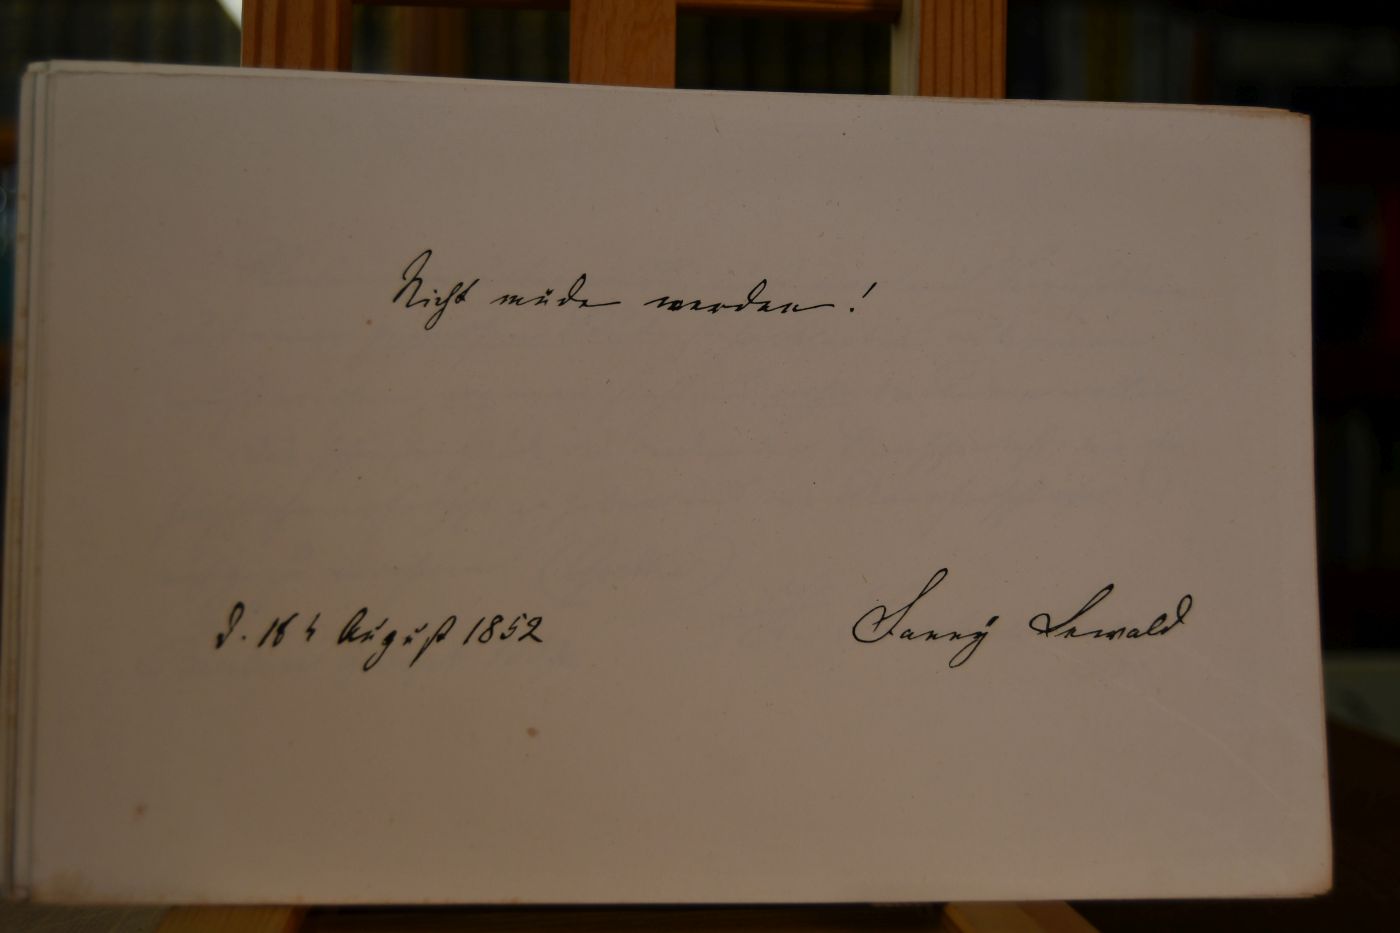 Nicht müde werden!
d. 18 t August 1852
Fanny Lewald